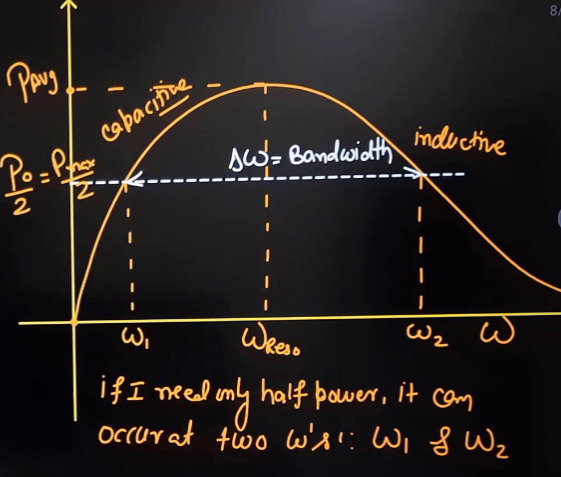 8/
Pavg
capacitive
inductive
Δω = Bandwidth
P₀/2 = Pmax/2
ω₁
ωReso
ω₂
ω
if I need only half power, it can
occur at two ω's: ω₁ & ω₂